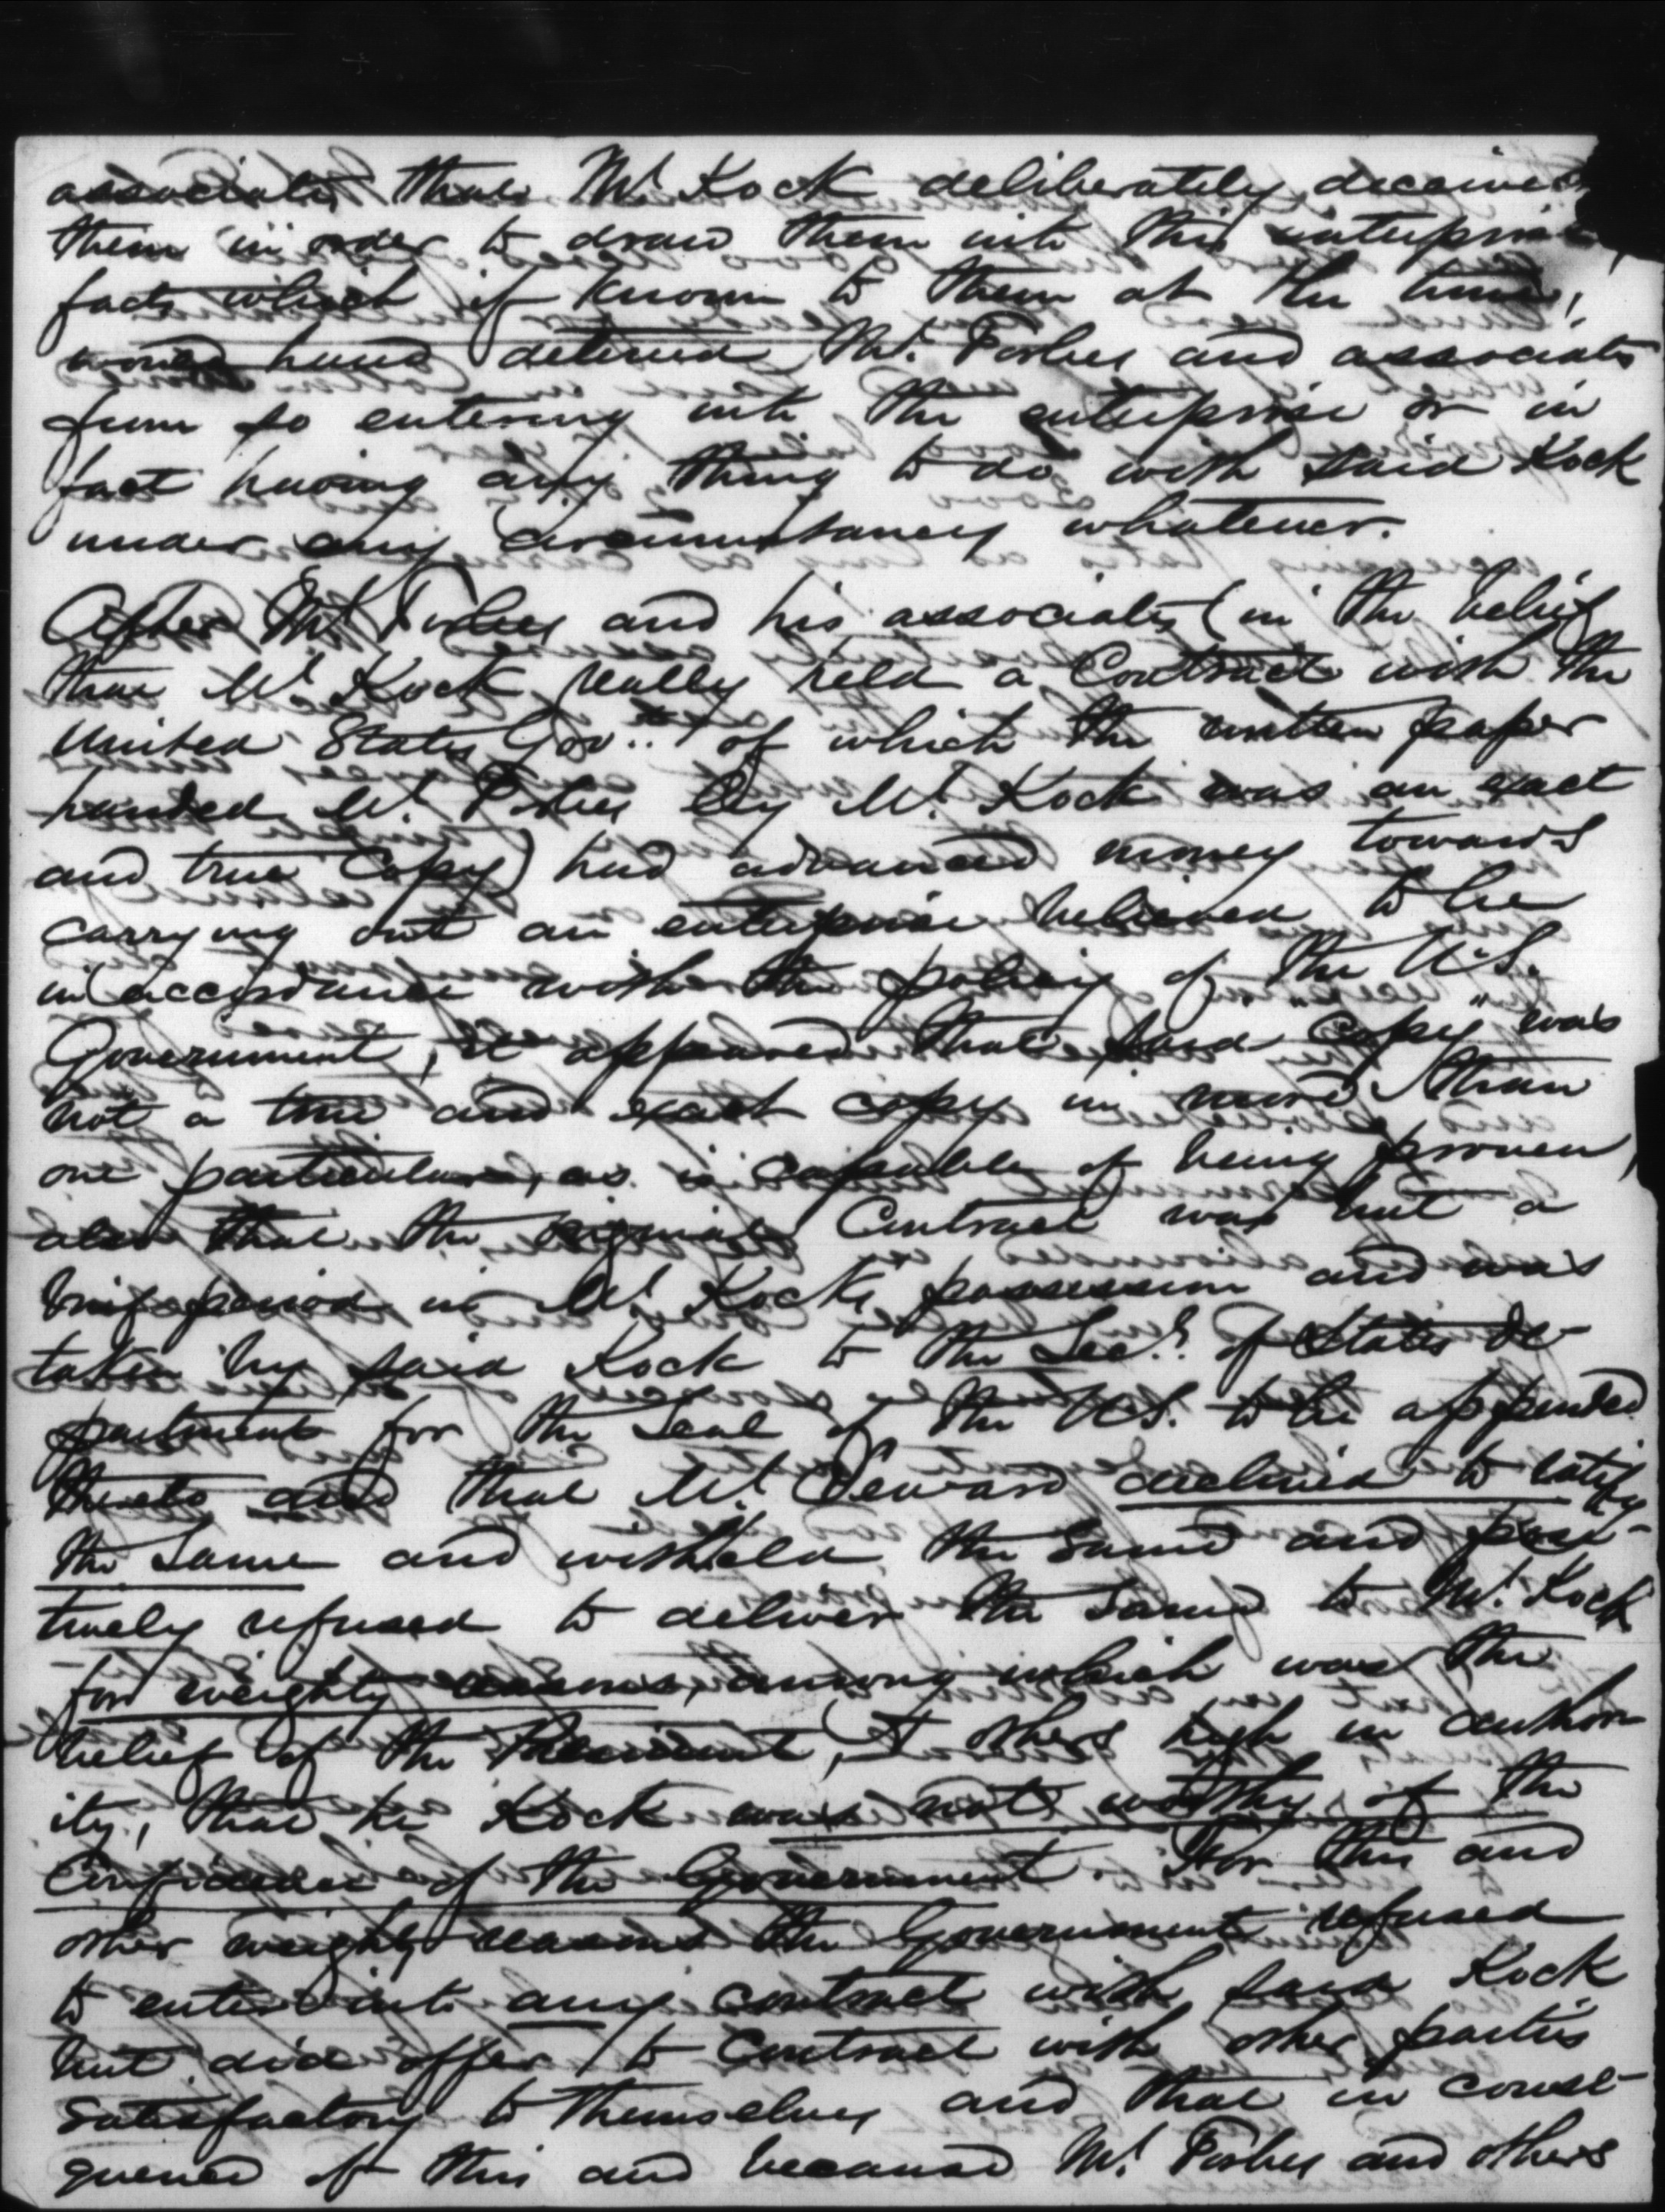 associates that Mr. Kock deliberately deceived
them in order to draw them into this enterprise
facts which if known to them at the time,
would have deterred Mr. Forbes and associates
from so entering into the enterprise or in
fact having any thing to do with said Kock
under any circumstances whatever.
After Mr. Forbes and his associates (in the belief
that Mr. Kock really held a Contract with the
United States Govt. of which the written paper
handed Mr. Forbes by Mr. Kock was an exact
and true Copy) had advanced money towards
carrying out an enterprise believed to be
in accordance with the policy of the U.S.
Government, it appeared that said "Copy" was
not a true and exact copy in more than
one particular, as is capable of being proven,
also that the original Contract was but a
brief period in Mr. Kock's possession and was
taken by said Kock to the Secy. of States De-
partment for the Seal of the U.S. to be appended
thereto and that Mr. Seward declined to ratify
the same and withheld the same and posi-
tively refused to deliver the same to Mr. Kock
for weighty reasons, among which was the
belief of the President, & others high in author-
ity, that he Kock was not worthy of the
Confidence of the Government. For this and
other weighty reasons the Government refused
to enter into any contract with said Kock
but did offer to Contract with other parties
satisfactory to themselves and that in conse-
quence of this and because Mr. Forbes and others